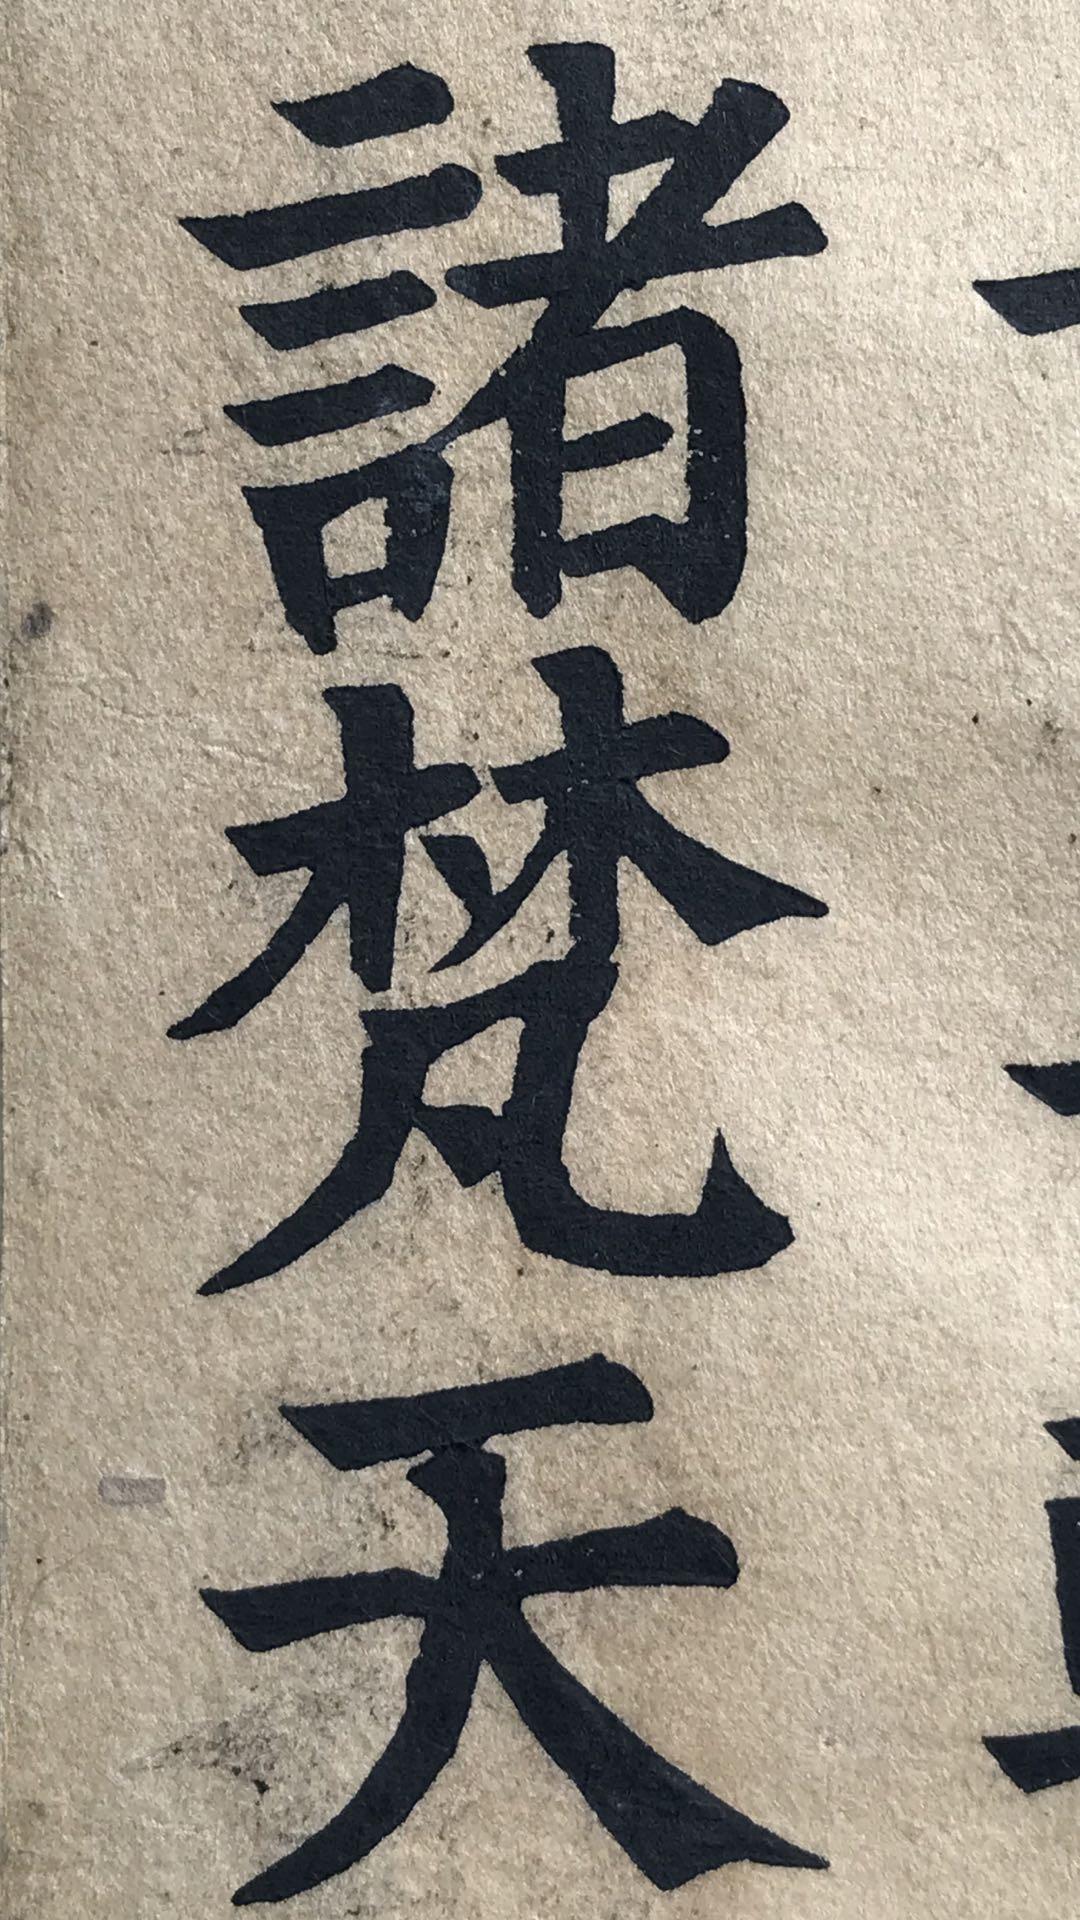 諸梵天